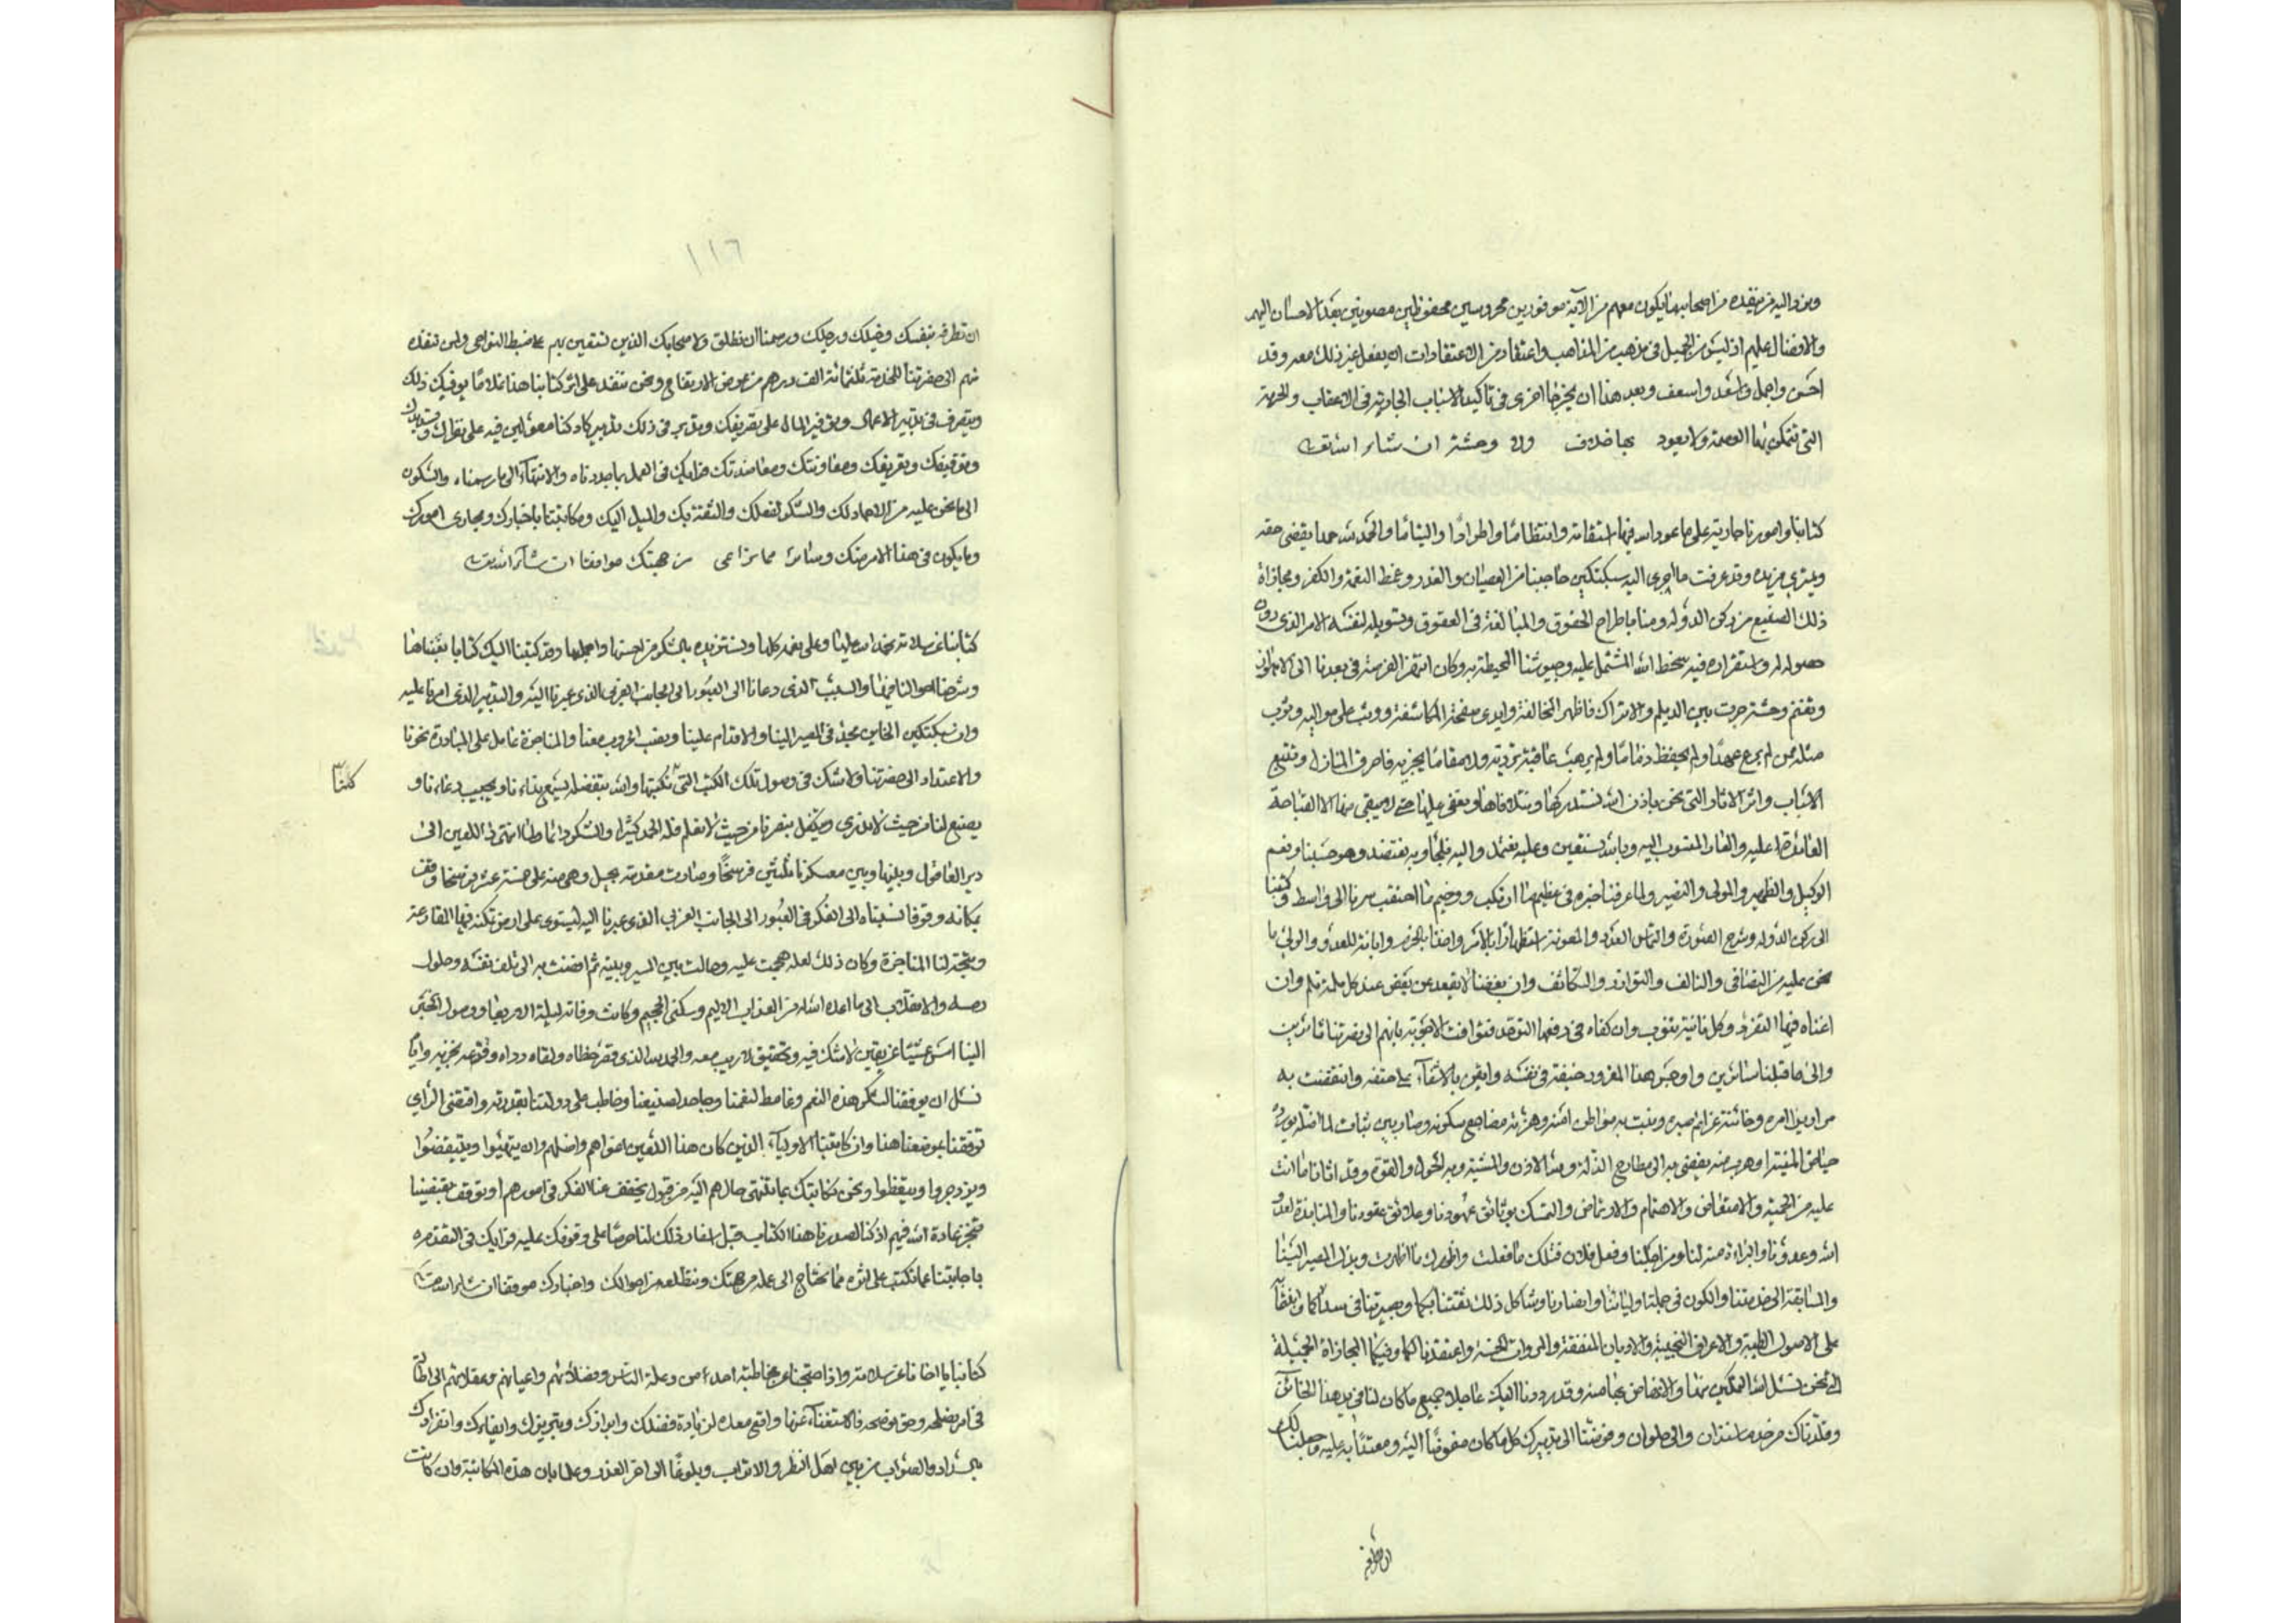 ويزد اليه من ينفذه من اصحابها يكون معهم من الآية موفورين محروسين محفوظين مصونين بعد الاحسان اليهم
والافضال عليهم اذ ليس من الجميل في مذهب من المذاهب واعتقاد من الاعتقادات ان يفعل غير ذلك معه وقد
احسن واجمل واسعد واسعف وبعد هذا ان يجرى اخرى في تاكيد الاسباب الجارية في الاعقاب والحرمة
التي تتمكن بها العصمة ولا يعود بها خلاف ولا وحشة ان شاء الله تعالى
كتابنا وامورنا جارية على ما عود الله فيها استقامة وانتظاما واطرادا والتياما والحمد لله حمدا يقضى حقه
ويمترى مزيده وقد عرفت ما اجرى اليه سبكتكين حاجبنا من العصيان والغدر وغمط النعمة والكفر ومجازاة
ذلك الصنيع من ركن الدولة ومنا باطراح الحقوق والمبالغة في العقوق وتسويله لنفسه الامر الذي دون
حصوله له واستقراره فيه سخط الله المشتمل عليه وجيوشنا المحيطة به وكان انتهز الفرصة في بعدنا الى الاهواز
وتغنم وحشة جرت بين الديلم والاتراك فاظهر المخالفة وابدى صفحة المكاشفة ووثب على مواليه وثوب
مثله ممن لم يرع عهدا ولم يحفظ ذماما ولم يرهب عاقبة ترديه ولا مقاما يخزيه فاحرق المنازل وتتبع
الاسباب واثر الاثار التي نحن باذن الله نستدركها ونتلافاها ونعفى عليها حتى لا يبقى منها الا القباحة
العائد عليه والعار المنسوب اليه وبالله نستعين وعليه نعتمد واليه نلجأ وبه نعتضد وهو حسبنا ونعم
الوكيل والظهير والمولى والنصير ولما عرفنا خبره في عظيم ما ارتكب ووخيم ما احتقب سرنا الى واسط وكتبنا
الى ركن الدولة بشرح الصورة والتماس المدد والمعونة استظهارا بالامر واخذا بالحزم وابانة للعدو والولي ما
نحن عليه من التصافي والتالف والتوازر والتكاثف وان بعضنا لا يقعد عن بعض عند كل ملمة تلم وان
اغناه فيها التفرد وكل نائبة تنوب وان كفاه في دفعها التوحد فتوافت الاجوبة بانهم الى نصرتنا ثائرين
والى ما قبلنا سائرين واوجس هذا المغرور خيفة في نفسه وايقن بالاشفاء على حتفه وانتقضت به
مراير امره وخانته عزائم صبره ونبت به مواطن امنه وهزته مضاجع سكونه وصار بين ثبات لما اظله يورده
حياض المنية او هرب منه يفضي به الى مطارح الذلة وبيد الله الاذن والمشية وبه الحول والقوة وقد اتانا ما انت
عليه من الحمية والامتعاض والاهتمام والارتماض والتمسك بوثائق عهودنا وعلائق عقودنا والمنابذة لعدو
الله وعدونا والبراءة منه لنا ومن اجلنا وفعل فلان مثلك ما فعلت واظهرك ما اظهرت وبذل المصير الينا
والمسابقة الى خدمتنا والكون في جملة اوليائنا وانصارنا وشاكل ذلك ثقتنا بكما وبصيرتنا في سدادكما واتفقا
على الاصول الطيبة والاعراق النجيبة والاديان المتفقة والمروات الحسنة واعتقدنا لكما وفيكما المجازاة الجميلة
التي نحن نسل الله التمكين منها والانهاض بحقها منه وقد رددنا اليك عاجلا جميع ما كان لنا في يد هذا الخائن
وقلدناك من حد ماسبذان والى حلوان وفوضنا الى تدبيرك كل ما كان مفوضا اليه ومعتمدا به عليه وجعلنا لك
ان تطرقه
١١٦
ان تطرقه بنفسك وخيلك ورجلك ورسمنا ان نطلق ولاصحابك الذين تستعين بهم على ضبط النواحي ولمن تنفذه
منهم الى حضرتنا للخدمة ثلثمائة الف درهم من عوض الارتفاع ونحن ننفذ على اثر كتابنا هذا غلاما يوفيك ذلك
ويتصرف في تدبير الاعمال وتوفير المال على تصريفك وتدبير في ذلك تدبير كاد كنا معولين فيه على نظرك وتسديدك
وتوقيفك وتعريفك ومعاونتك ومعاضدتك فرايك في العمل بما حددناه والانتهاء الى ما رسمناه والسكون
الى ما نحن عليه من الاحماد لك والشكر لفعلك والثقة بك والميل اليك ومكاتبتنا باخبارك ومجاري امورك
وما يكون في هذا الامر منك وسائر مما يراعى من جهتك موافقا ان شاء الله تعالى
كتابنا عن سلامة نحمد الله عليها وعلى نعمه كلها ونستزيده بالشكر من احسنها واجملها وقد كتبنا اليك كتابا بعثناها
وشرحنا احوالنا فيها والسبب الذي دعانا الى العبور الى الجانب الغربي الذي عبرنا اليه والتدبير الذي امرنا عليه
وان سبكتكين الخائن مجد في المصير الينا والاقدام علينا ونصب الحروب معنا والمناجزة عامل على المبادرة نحونا
والاعتداد الى حضرتنا ولا شك في وصول تلك الكتب التي نكتبها والله بتفضله يسمع نداءنا ويجيب دعاءنا و
كلنا
يصنع لنا من حيث لا ندري ويتكفل بنصرنا من حيث لا نعلم فله الحمد كثيرا والشكر دائما ولما انتهى هذا اللعين الى
دير العاقول وبينها وبين معسكرنا ثلثين فرسخا وصارت مقدمته بجبل وهي منه على خمسة عشر فرسخا وقف
بمكانه وقوفا نسبناه الى الفكر في العبور الى الجانب الغربي الذي عبرنا اليه ليستوى على ارض تمكنه فيها المقارعة
وتتجه لنا المناجزة وكان ذلك لعلة هجمت عليه وحالت بين المسير وبينه ثم افضت به الى تلف نفسه وحلول
رمسه والانقلاب الى ما اعده الله له من العذاب الاليم وسكنى الجحيم وكانت وفاته ليلة الاربعاء ووصول الخبر
الينا امس عشيا عن يقين لا شك فيه وتحقيق لا ريب معه والحمد لله الذي قصر خطاه ولقاه رداه وقنعه بخزيه واياه
نسل ان يوفقنا لشكر هذه النعم وغامط لنعمنا وجاحد لصنيعنا وخاطب على دولتنا بقدرته واقتضى الراي
توقفنا بموضعنا هذا وان كاتبنا الاولياء الذين كان هذا اللعين اغواهم واضلهم وان يتهيئوا ويتيقضوا
ويزدجروا ويتيقظوا ونحن نكاتبك بما تنتهي حالهم اليه من قبول يخفف عنا الفكر في امورهم او توقف يقتضينا
منجز عادة الله فيهم اذ كنا اصدرنا هذا الكتاب قبل اسفار ذلك لنا حرصا على وقوفك عليه فرايك في التقدم
باجابتنا عما نكتب على اثره مما نحتاج الى علمه من جهتك ونتطلعه من احوالك واخبارك موفقا ان شاء الله تعالى
كتابنا يا اخانا عن سلامة واذا احتجنا عن مخاطبة احد من وعلة الناس وفضلائهم واعيانهم وعقلائهم الى اطالة
في امر يصلحه وحق يوضحه فالاستغناء عنها واقع معك لزيادة فضلك وابرازك وتبريزك وايفاءك وانفرادك
بالسداد والصواب من بين اهل النظر والالباب وبلوغا الى اخر العذر وعلما بان هذه المكاتبة وان كانت